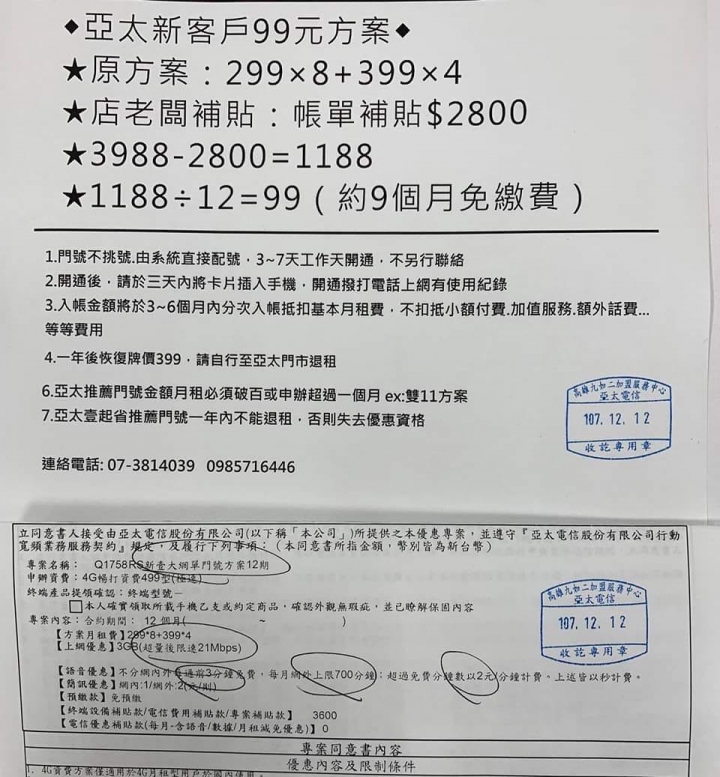 ◆亞太新客戶99元方案◆
★原方案：299×8+399×4
★店老闆補貼：帳單補貼$2800
★3988-2800=1188
★1188÷12=99（約9個月免繳費）
1.門號不挑號.由系統直接配號，3~7天工作天開通，不另行聯絡
2.開通後，請於三天內將卡片插入手機，開通撥打電話上網有使用紀錄
3.入帳金額將於3~6個月內分次入帳抵扣基本月租費，不扣抵小額付費.加值服務.額外話費...
等等費用
4.一年後恢復牌價399，請自行至亞太門市退租
6.亞太推薦門號金額月租必須破百或申辦超過一個月 ex:雙11方案
7.亞太壹起省推薦門號一年內不能退租，否則失去優惠資格
高雄九如二加盟服務中心
亞太電信
107. 12. 12
收訖專用章
連絡電話: 07-3814039 0985716446
立同意書人接受由亞太電信股份有限公司(以下稱「本公司」)所提供之本優惠專案，並遵守『亞太電信股份有限公司行動
寬頻業務服務契約』規定，及履行下列事項：（本同意書所指金額，幣別皆為新台幣）
專案名稱： Q1758RS新壹大網單門號方案12期
申辦資費：4G暢打資費499型(極速)
終端產品提領確認：終端型號－
□本人確實領取所載手機乙支或約定商品，確認外觀無瑕疵，並已瞭解保固內容
專案內容：合約期間： 12 個月( ~ )
【方案月租費】299*8+399*4
【上網優惠】3GB(超量後限速21Mbps)
【語音優惠】不分網內外每通前3分鐘免費，每月網外上限700分鐘；超過免費分鐘數以2元/分鐘計費。上述皆以秒計費。
【簡訊優惠】網內:1/網外:2(元/則)
【預繳款】免預繳
【終端設備補貼款/電信費用補貼款/專案補貼款】 3600
【電信優惠補貼款(每月-含語音/數據/月租減免優惠)】0
高雄九如二加盟服務中心
亞太電信
107. 12. 12
收訖專用章
專案同意書內容
優惠內容及限制條件
1. 4G資費方案僅適用於4G月租型用戶於國內使用